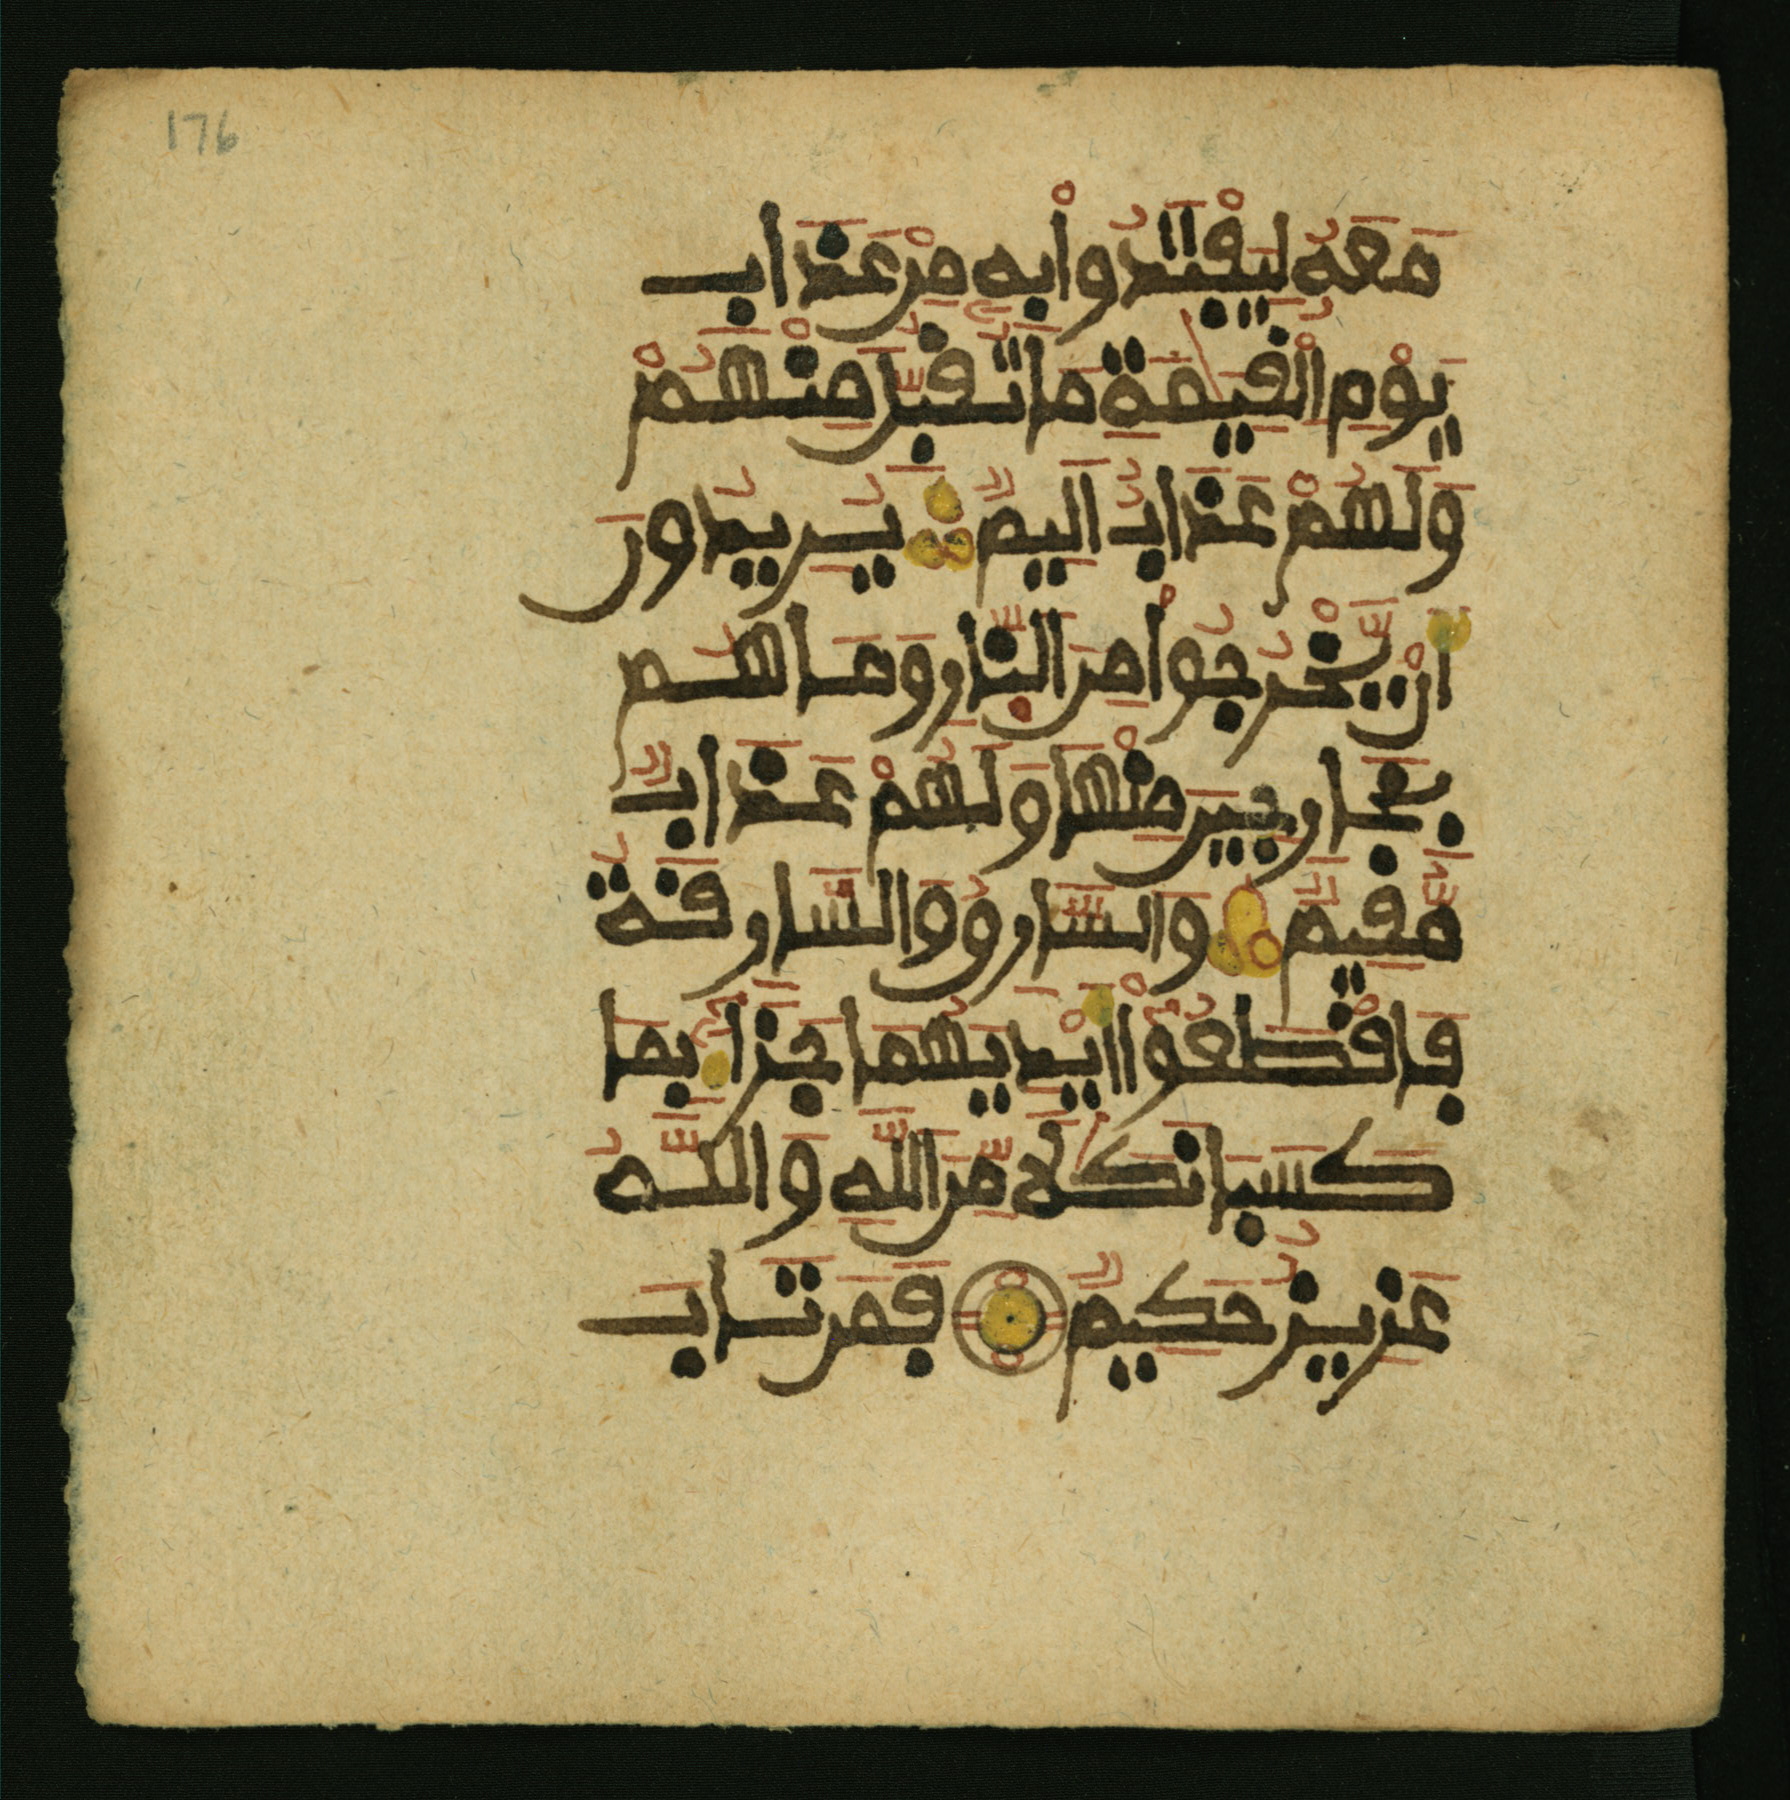 176
مَعَهُ لِيَفْتَدُواْ بِهِ مِنْ عَذَابِ
يَوْمِ اِ۬لْقِيَٰمَةِ مَا تُقُبِّلَ مِنْهُمْ
وَلَهُمْ عَذَابٌ اَلِيمٌ يُرِيدُونَ
أَنْ يَّخْرُجُواْ مِنَ اَ۬لنّارِ وَمَا هُم
بِخَارِجِينَ مِنْهَا وَلَهُمْ عَذَابٌ
مُّقِيمٌ وَالسَّارِقُ وَالسَّارِقَةُ
فَاقْطَعُوٓاْ أَيْدِيَهُمَا جَزَآءَۢ بِمَا
كَسَبَا نَكَٰلًا مِّنَ اَللَّهِ وَاللَّهُ
عَزِيزٌ حَكِيمٌ فَمَن تَابَ